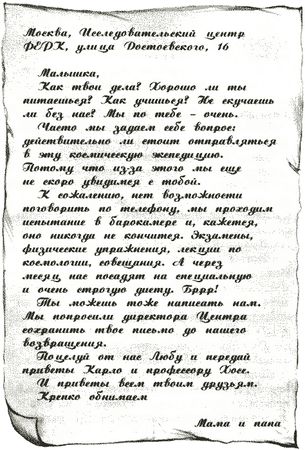 Москва, Исследовательский центр
ФЕРК, улица Достоевского, 16
Малышка,
Как твои дела? Хорошо ли ты
питаешься? Как учишься? Не скучаешь
ли без нас? Мы по тебе - очень.
Часто мы задаем себе вопрос:
действительно ли стоит отправляться
в эту космическую экспедицию.
Потому что из-за этого мы еще
не скоро увидимся с тобой.
К сожалению, нет возможности
поговорить по телефону, мы проходим
испытание в барокамере и, кажется,
оно никогда не кончится. Экзамены,
физические упражнения, лекции по
космологии, совещания. А через
месяц нас посадят на специальную
и очень строгую диету. Бррр!
Ты можешь тоже написать нам.
Мы попросили директора Центра
сохранить твое письмо до нашего
возвращения.
Поцелуй от нас Любу и передай
приветы Карло и профессору Хосе.
И приветы всем твоим друзьям.
Крепко обнимаем
Мама и папа